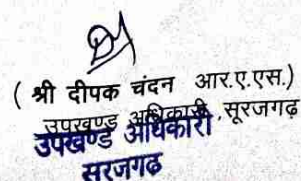 ( श्री दीपक चंदन आर.ए.एस.)
उपखण्ड अधिकारी, सूरजगढ़
उपखण्ड अधिकारी
सूरजगढ़